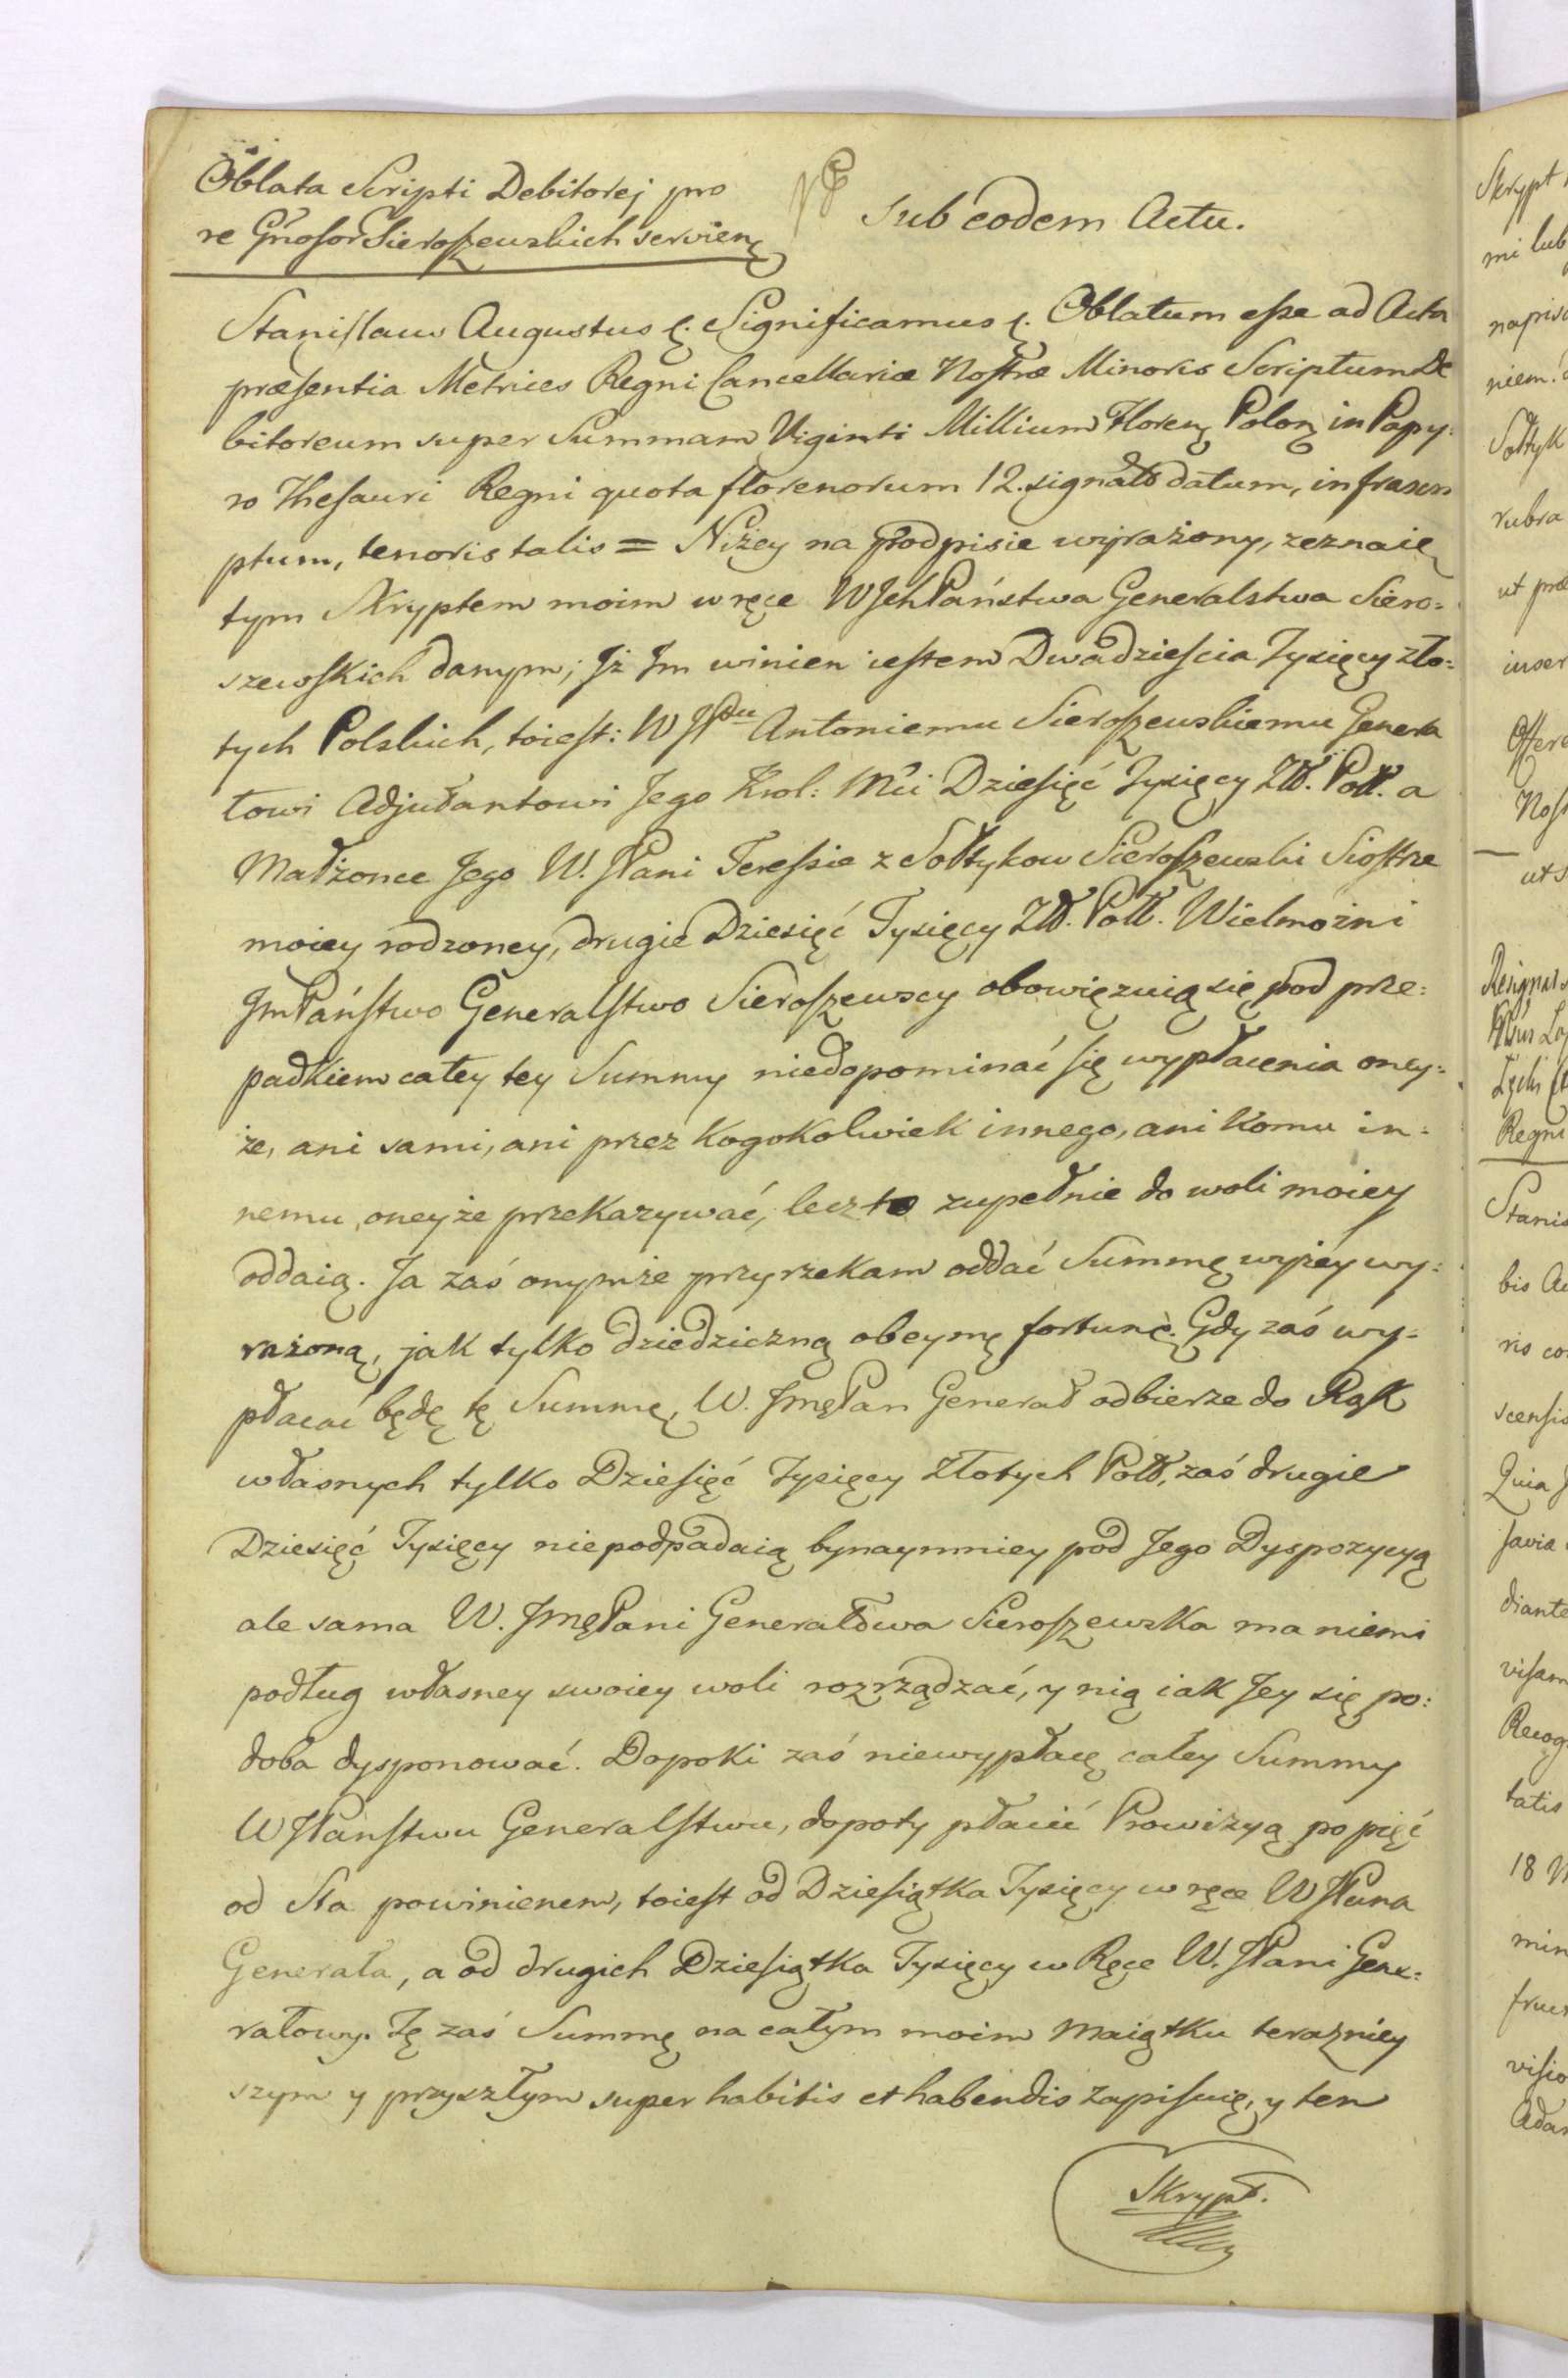 Oblata Scripti Debitorej pro
re Gnosor Sieroszewskich servienę
Sub eodem Actu.
Stanislaus Augustus ę. Significamus ę. Oblatum esse ad Acta
præsentia Metrices Regni Cancellariæ Nostræ Minoris Scriptum De
bitoreum super Summam Viginti Millium Florenę Polonę in Papy:
ro Thesauri Regni quota florenorum 12. signato datum, infrascri
ptum, tenoris talis = Niżey na Podpisie wyrażony, zeznaię
tym Skryptem moim w ręce WJch Państwa Generalstwa Siero=
szewskich danym; Jż Jm winien iestem Dwadzieścia Tysięcy zło=
tych Polskich, toiest: W JPdu Antoniemu Sieroszewskiemu Genera
łowi Adjutantowi Jego Krol: Mci Dziesięć Tysięcy Zł. Poll. a
Małżonce Jego W. JPani Teressie z Sołtykow Sieroszewski Siostrze
moiey rodzoney, drugie Dziesięć Tysięcy Zł. Poll. Wielmożni
JmPaństwo Generalstwo Sieroszewscy obowięzuią się pod prze:
padkiem całey tey Summy niedopominać się wypłacenia oney=
że, ani sami, ani przez Kogokolwiek innego, ani Komu in=
nemu, oneyże przekazywać, lecz to zupełnie do woli moiey
oddaią. Ja zaś onymże przyrzekam oddać Summę wyżey wy=
rażoną, jak tylko dziedziczną obeymę fortunę. Gdy zaś wy=
płacać będę tę Summę, W. JmęPan Generał odbierze do Rąk
własnych tylko Dziesięć Tysięcy Złotych Poll, zaś drugie
Dziesięć Tysięcy niepodpadaią bynaymniey pod Jego Dyspozycyą
ale sama W. JmęPani Generałowa Sieroszewska ma niemi
podług własney swoiey woli rozrządzać, y nią iak Jey się po:
doba dysponować. Dopoki zaś niewypłacę całey Summy
W JPanstwu Generalstwu, dopoty płacić Prowizyą po pięć
od Sta powinienem, toiest od Dziesiątka Tysięcy w ręce W JPana
Generała, a od drugich Dziesiątka Tysięcy w Ręce W. JPani Gene=
rałowy. Tę zaś Summę na całym moim Maiątku terazniey
szym y przyszłym super habitis et habendis zapisuię, y ten
Skrypt.
Skrypt
mi lub
napisa
niem.
Sołtyk
rubra
ut præ
inser
Offere
Nost
ut s
Regni
Stanis
bis Ac
ris co
scensis
Quia
diante
visam
Recog
tatis
18
min
fruc
visio
Adam